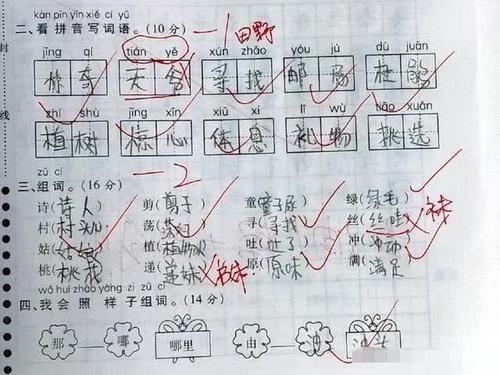 kàn pīn yīn xiě cí yǔ
二、看拼音写词语。(10分) 一1 田野
封 jīng qí tián yě xún zhǎo yóu jú dù juān
天 寻找 邮 杜鹃
线 zhí shù jīng xīn xiū xi lǐ wù tiāo xuǎn
植树 惊心 体息 礼物 挑选
一2
三、组词。(16分)
诗(诗人) 剪(剪子) 童(童子) 绿(绿毛)
村(村) 荡() 寻(寻找) 丝(丝哇)
姑(姑娘) 植(植物) 吐(吐了) 冲(冲动)
桃(桃花) 递(递妹) 原(原味) 满(满足)
wǒ huì zhào yàng zi zǔ cí
四、我会照样子组词。(14分)
那 哪 哪里 由 油